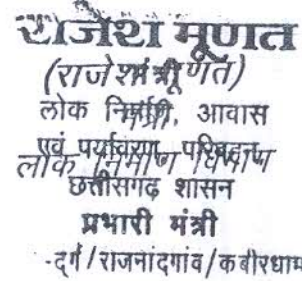 राजेश मूणत
(राजेश मूणत)
मंत्री
लोक निर्माण, आवास
एवं पर्यावरण, परिवहन
लोक निर्माण विभाग
छत्तीसगढ़ शासन
प्रभारी मंत्री
-दुर्ग/राजनांदगांव/कबीरधाम